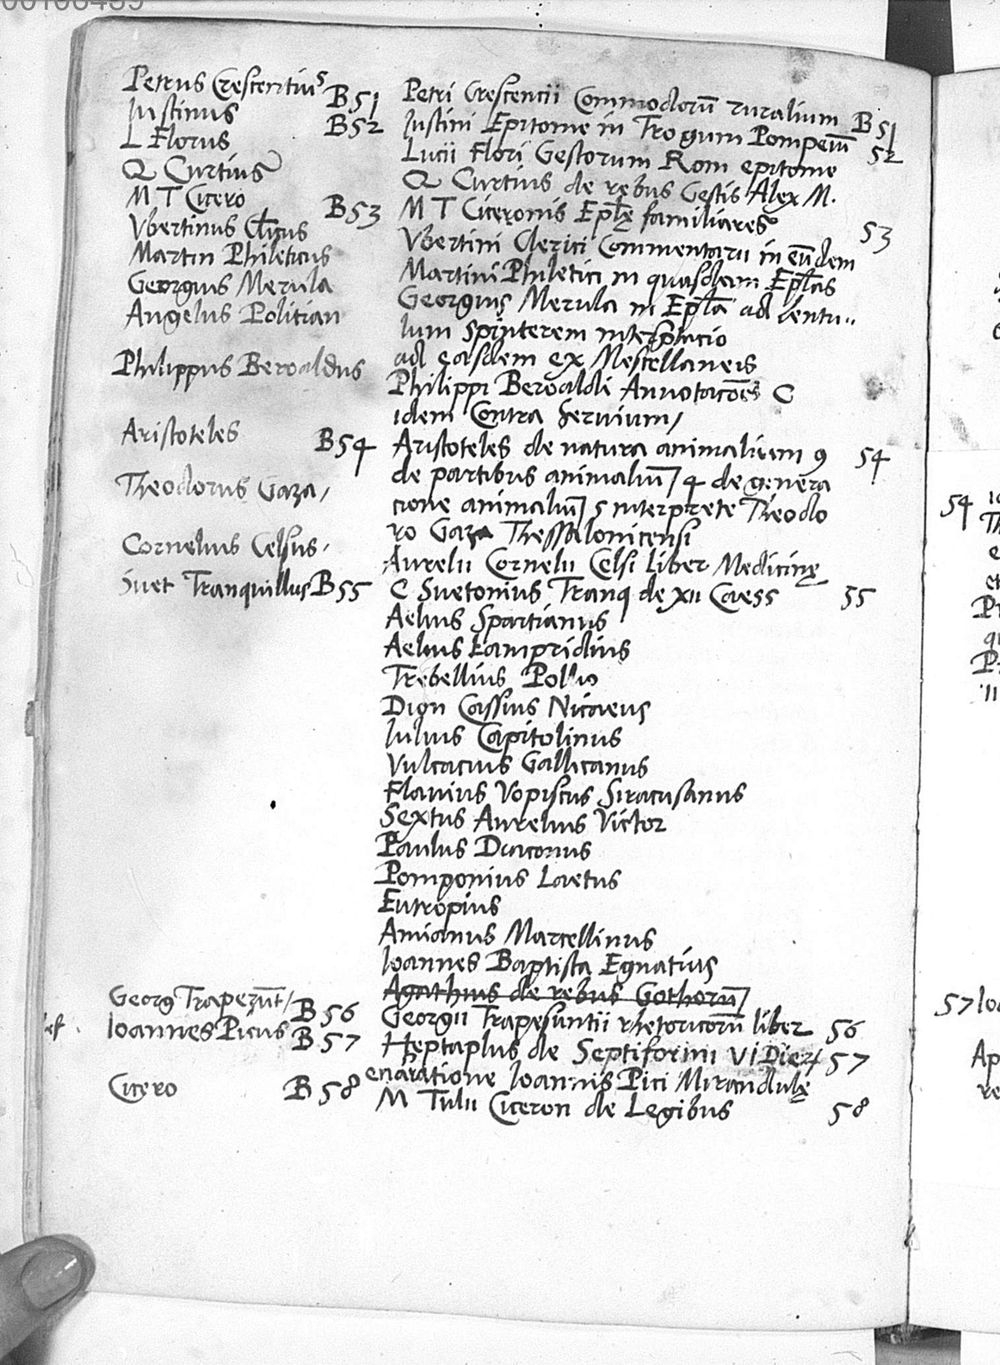 Petrus Crescentius B51 Petri Crescencii Commodorū ruralium B51
Iustinus B52 Iustini Epitome in Trogum Pompeiū 52
L Florus Lucii Flori Gestorum Rom epitome
Q Curtius Q Curtius de rebus Gestis Alex M.
M T Cicero B53 M T Ciceronis Epl̄ę familiares 53
Vbertinus Vbertini Clerici Commentarii in eūdem
Martin Phileticus Martini Philetici in quasdam Epl̄as
Georgius Merula Georgius Merula in Epl̄a ad Lentu..
Angelus Politian lum Spinterem
ad easdem ex Mescellaneis
Philippus Beroaldus Philippi Beroaldi Annotacōes C
idem Contra Servium/
Aristoteles B54 Aristoteles de natura animalium 9 54
de partibus animaliū/ 4 de genera
Theodorus Gaza/ cione animaliū/ 5 interprete Theodo
ro Gaza Thessalonicensi
Cornelius Celsus. Aurelii Cornelii Celsi liber Medicinę
Suet Tranquillus B55 C Suetonius Tranq de xii Caess 55
Aelius Spartianus
Aelius Lampridius
Trebellius Pollio
Dion Cassius Nicaeus
Iulius Capitolinus
Vulcacius Gallicanus
Flavius Vopiscus Siracusanus
Sextus Aurelius Victor
Paulus Diaconus
Pomponius Laetus
Eutropius
Amianus Marcellinus
Ioannes Baptista Egnatius
Agathius de rebus Gothorū/
Georg Trapezūt/ B56 Georgii Trapesuntii rhetoricorū liber 56
Ioannes Picus B57 Heptaplus de Septiformi VI Dier/ 57
enaratione Ioannis Pici Mirandulę
Cicero B58 M Tulii Ciceron de Legibus 58
54
57 Ioa